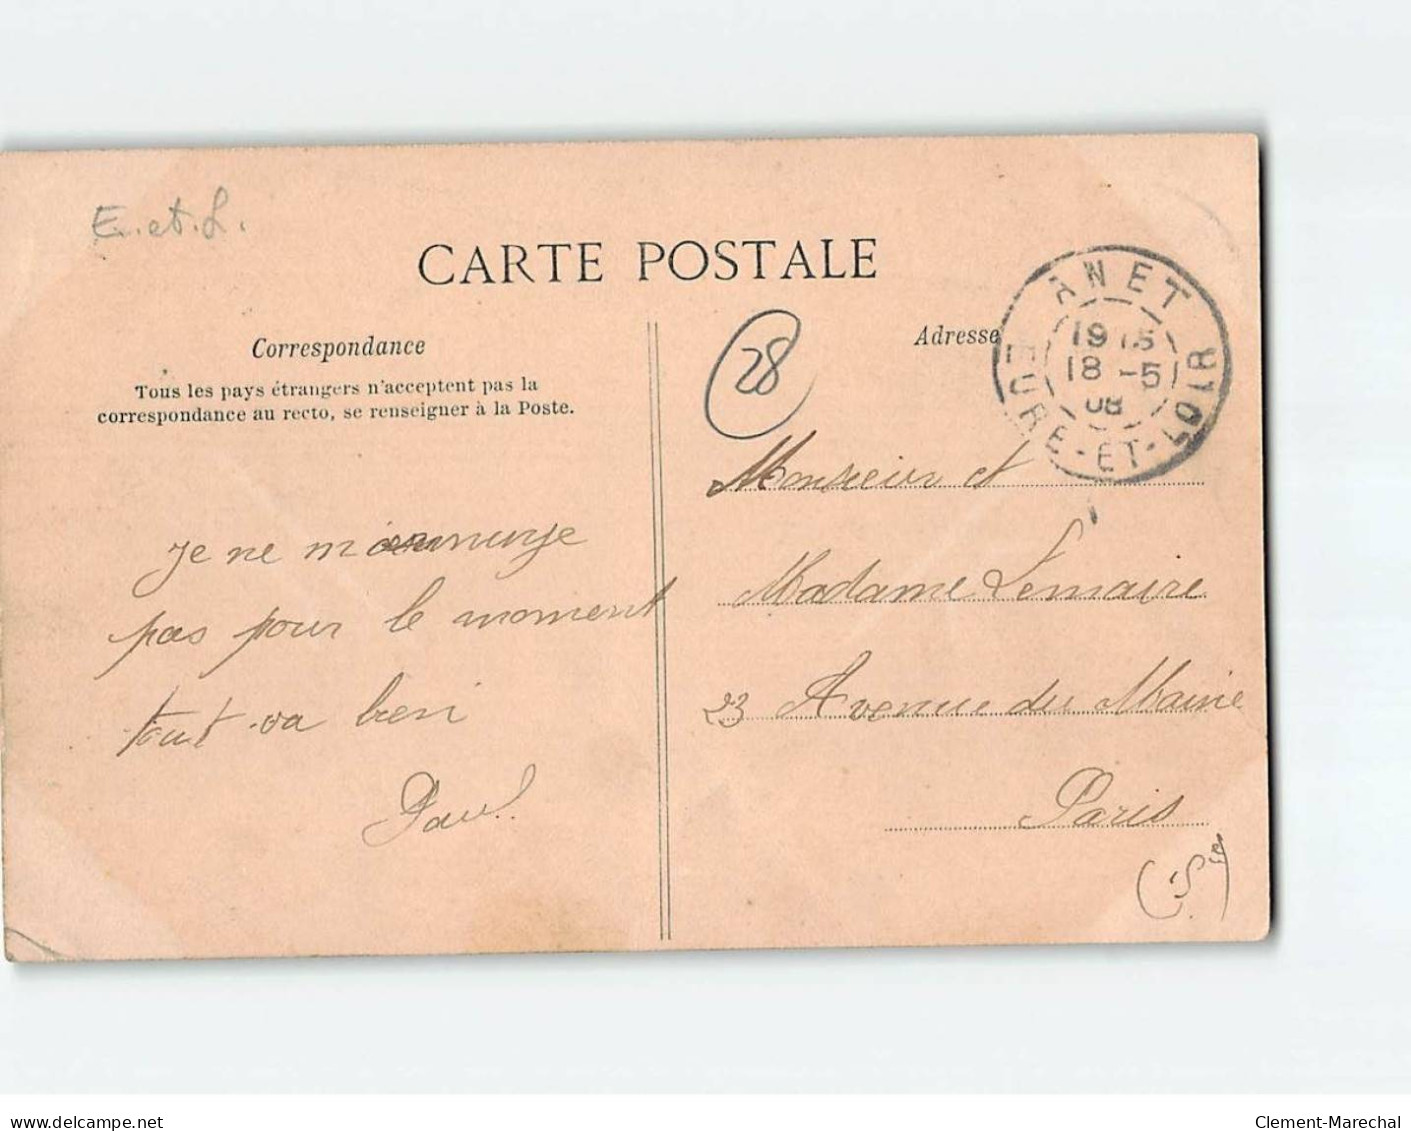 E. et L.
CARTE POSTALE
Correspondance
Tous les pays étrangers n'acceptent pas la
correspondance au recto, se renseigner à la Poste.
Je ne m'ennuye
pas pour le moment
tout va bien
Paul
28
Adresse
ANET
19 15
18 -5
08
EURE-ET-LOIR
Monsieur et
Madame Lemaire
23 Avenue du Maine
Paris
www.delcampe.net
Clement-Marechal